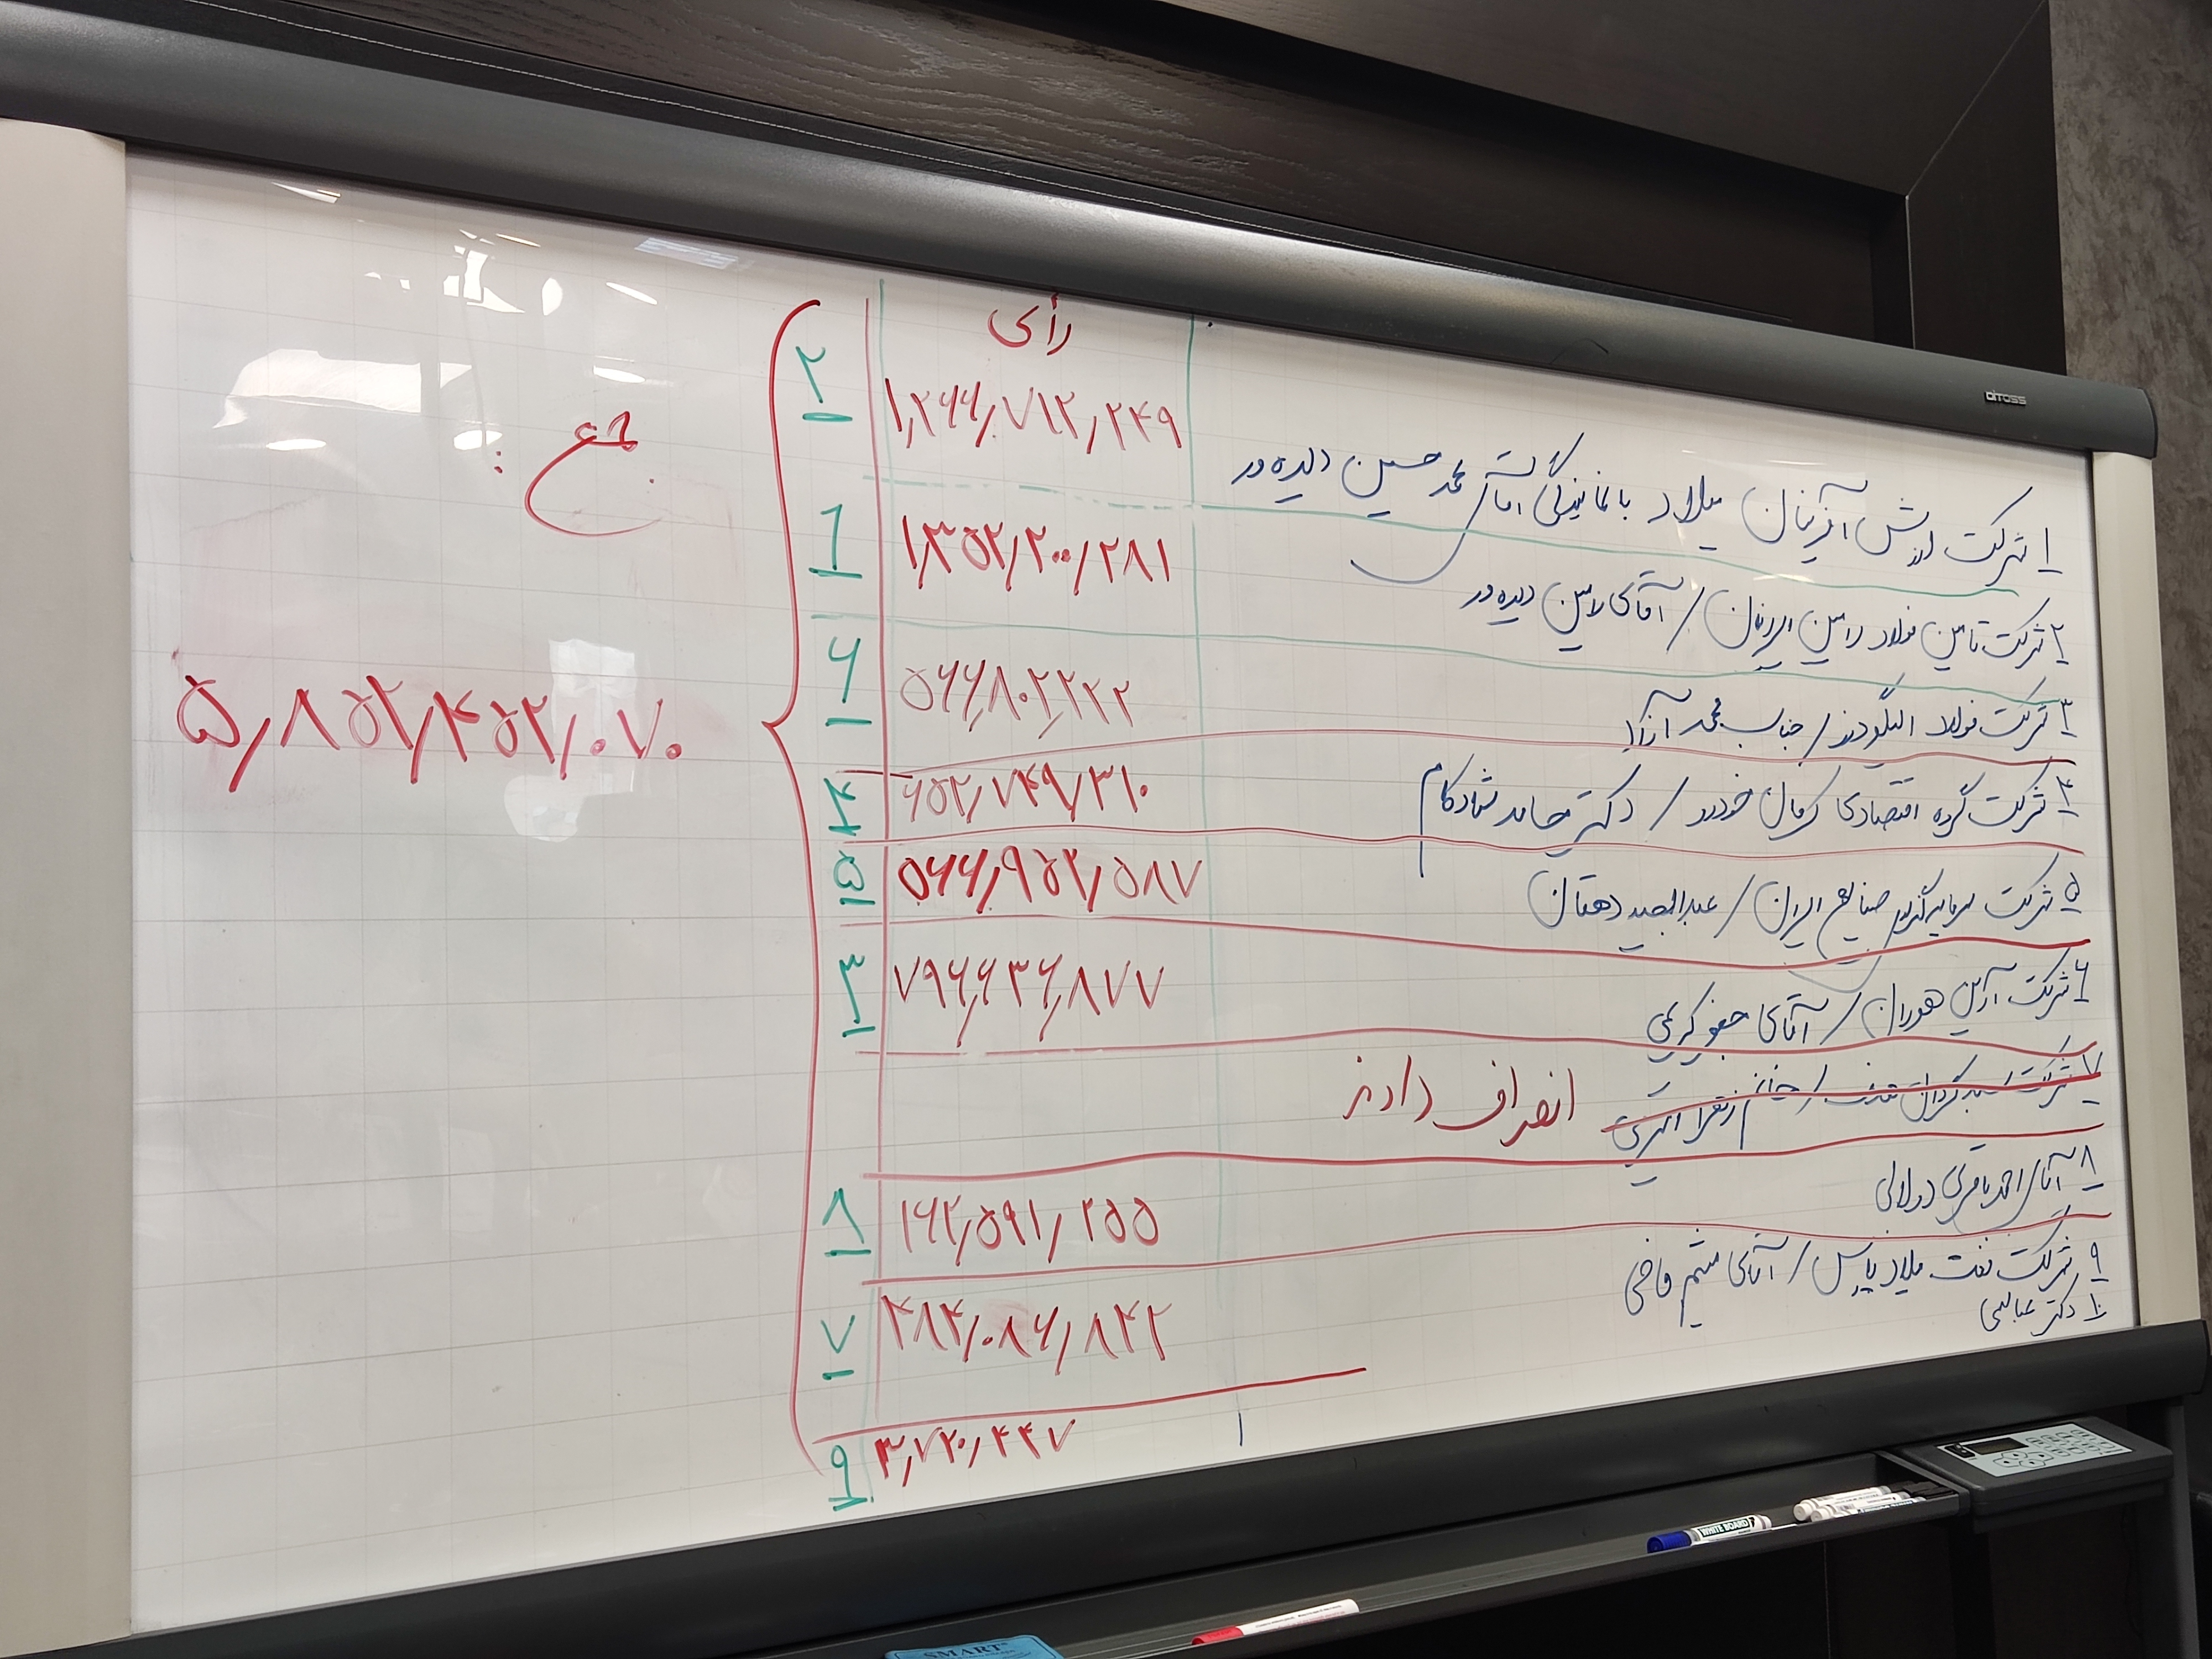 رأی
۱ شرکت ارزش آفرینان میلاد با نمایندگی آقای محمد حسین دیده ور ۱,۲۶۶,۷۱۲,۲۴۹ ۲
۲ شرکت تامین فولاد رامین ایرانیان / آقای رامین دیده ور ۱,۳۵۲,۲۰۰,۲۸۱ 1
۳ شرکت فولاد الیگودرز / جناب محمد ۵۶۶,۸۰۲,۲۲۲ ۶
۴ شرکت گروه اقتصادی کرمان خودرو / دکتر حامد شادکام ۶۵۲,۷۴۹,۳۱۰ ۴
۵ شرکت سرمایه گذاری صنایع ایران / عبدالمجید دهقان ۵۶۶,۹۵۲,۵۸۷ ۵
۶ شرکت آرین هوران / آقای جعفر کریمی ۷۹۶,۶۳۶,۸۷۷ ۳
۷ شرکت سبدگردان / خانم زهرا اکبری انصراف دادند
۸ آقای احمد باقری دولابی ۱۶۲,۵۹۱,۲۵۵ ۸
۹ شرکت نفت میلاد پارس / آقای میثم قاضی ۴۸۴,۰۸۶,۸۴۲ ۷
۱۰ دکتر عباسی ۳,۷۲۰,۴۴۷ ۹
جمع :
۵,۸۵۲,۴۵۲,۰۷۰
DITOSS
WHITE BOARD
SMART